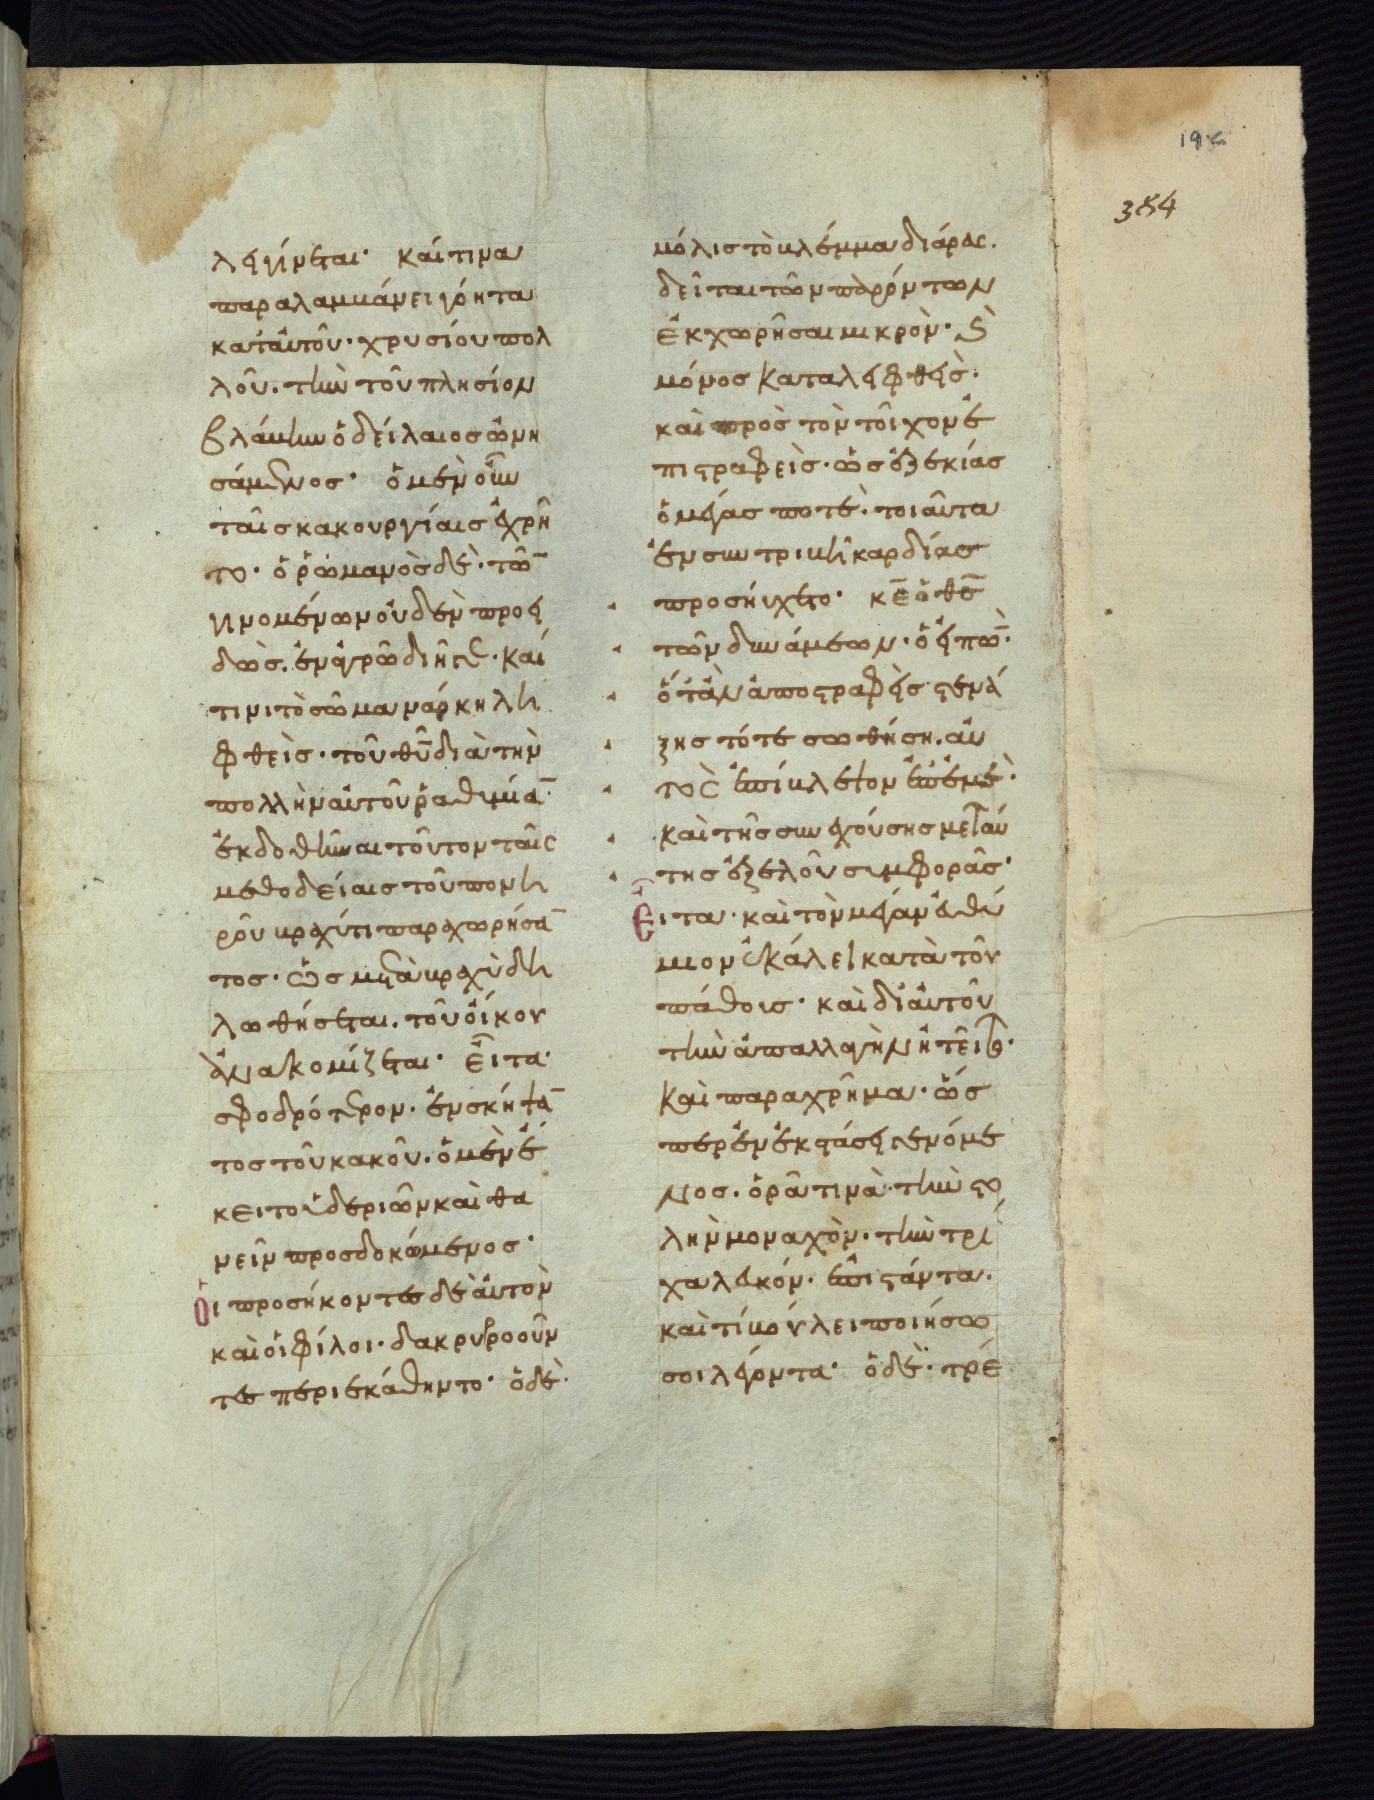 19c
384
λέγηνεται· καί τινα
παραλαμβάνει γόητα
κατ' αὐτοῦ· χρυσίου πολ
λοῦ. τὴν τοῦ πλησίον
βλάβην ὁ δείλαιος ὠνη
σάμενος· ὁ μὲν οὖν
ταῖς κακουργίαις ἐχρῆ
το· ὁ ῥωμανὸς δὲ· τῶν
γινομένων οὐδὲν προει
δὼς. ἐν ἀγρῶ διῆγε· καί
τινι τὸ σῶμα νάρκη λη
φθεὶς· τοῦ θῦ διὰ τὴν
πολλὴν αὐτοῦ ῥαθυμίαν
ἐκδοθῆναι τοῦτον ταῖς
μεθοδείαις τοῦ πονη
ροῦ βραχύ τι παραχωρήσαν
τος· ὡς μετὰ βραχὺ δη
λωθήσεται. τοῦ οἴκου
ἀνακομίζεται· εἶτα·
σφοδρότερον· ἐνσκήψαν
τος τοῦ κακοῦ. ὁ μὲν ἔ
κειτο δυσεριῶν καὶ θα
νεῖν προσδοκώμενος·
Οἱ προσήκοντες δὲ αὐτὸν
καὶ οἱ φίλοι· δακρυρροοῦν
τες περιεκάθηντο· ὁ δὲ·
μόλις τὸ βλέμμα διάρας.
δεῖται τῶν παρόντων
ἐκχωρῆσαι μικρὸν· καὶ
μόνος καταλειφθεὶς·
καὶ πρὸς τὸν τοῖχον ἐ
πιστραφεὶς· ὡς ἐζεκίας
ὁ μέγας ποτὲ· τοιαῦτα
ἐν συντριβῆ καρδίας
προσηύχετο· κε ὁ θς
τῶν δυνάμεων· ὁ εἰπὼν·
ὅταν ἀποστραφεὶς στενά
ξης τότε σωθήση. αὐ
τὸς ἐπίβλεψον ἐπ' ἐμὲ·
καὶ τῆς συνεχούσης με ταύ
της ἐξελοῦ συμφορᾶς·
Εἶτα· καὶ τὸν μέγαν εὐθύ
μιον ἐκάλει κατὰ τοῦ
πάθους· καὶ δι' αὐτοῦ
τὴν ἀπαλλαγὴν ἠτεῖτο·
καὶ παραχρῆμα· ὥς
περ ἐν ἐκστάσει γενόμε
νος. ὁρᾶ τινὰ· τὴν στο
λὴν μοναχὸν. τὴν τρί
χα λευκόν. ἐπιστάντα.
καὶ τί βούλει ποιήσω
σοι λέγοντα· ὁ δὲ· τρέ